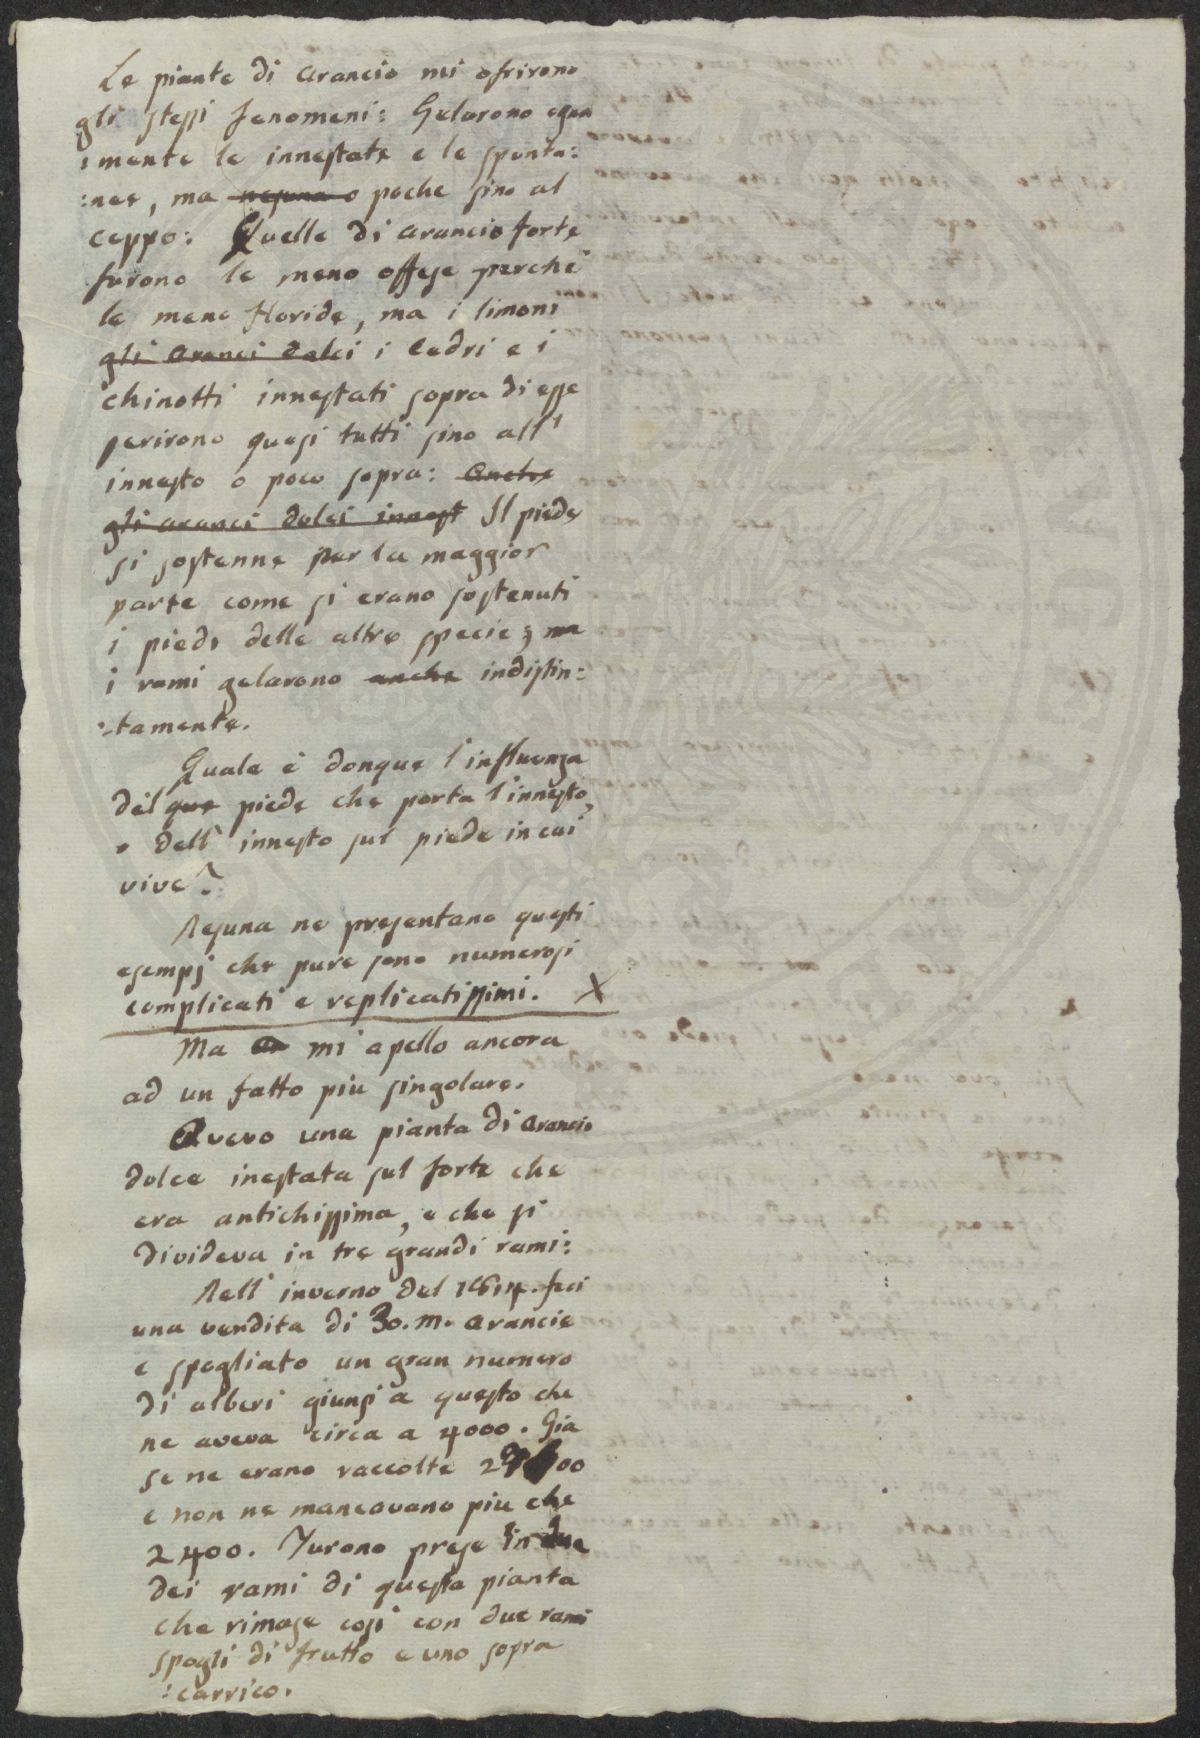 Le piante di Arancio mi ofrirono
gli stessi fenomeni: Gelarono egual
:mente le innestate e le sponta:
:nee, ma nesuna o poche sino al
ceppo: Quelle di Arancio forte
furono le meno offese perchè
le meno floride, ma i limoni
gli Aranci dolci i Cedri e i
chinotti innestati sopra di esse
perirono quasi tutti sino all'
innesto o poco sopra: Anche
gli aranci dolci innest Il piede
si sostenne per la maggior
parte come si erano sostenuti
i piedi delle altre specie; ma
i rami gelarono anche indistin:
:tamente.
Quale è donque l'influenza
del que piede che porta l'innesto,
o dell' innesto sul piede in cui
vive?
Nesuna ne presentano questi
esempj che pure sono numerosi
complicati e replicatissimi. X
Ma mi apello ancora
ad un fatto più singolare.
Avevo una pianta di Arancio
dolce inestata sul forte che
era antichissima, e che si
divideva in tre grandi rami:
Nell' inverno del 1814. feci
una vendita di 30.m. Arancie
e spogliato un gran numero
di alberi giunsi a questo che
ne aveva circa a 4000. Già
se ne erano raccolte
e non ne mancavano più che
2400. Furono prese in due
dei rami di questa pianta
che rimase così con due rami
spogli di frutto e uno sopra
:carrico.